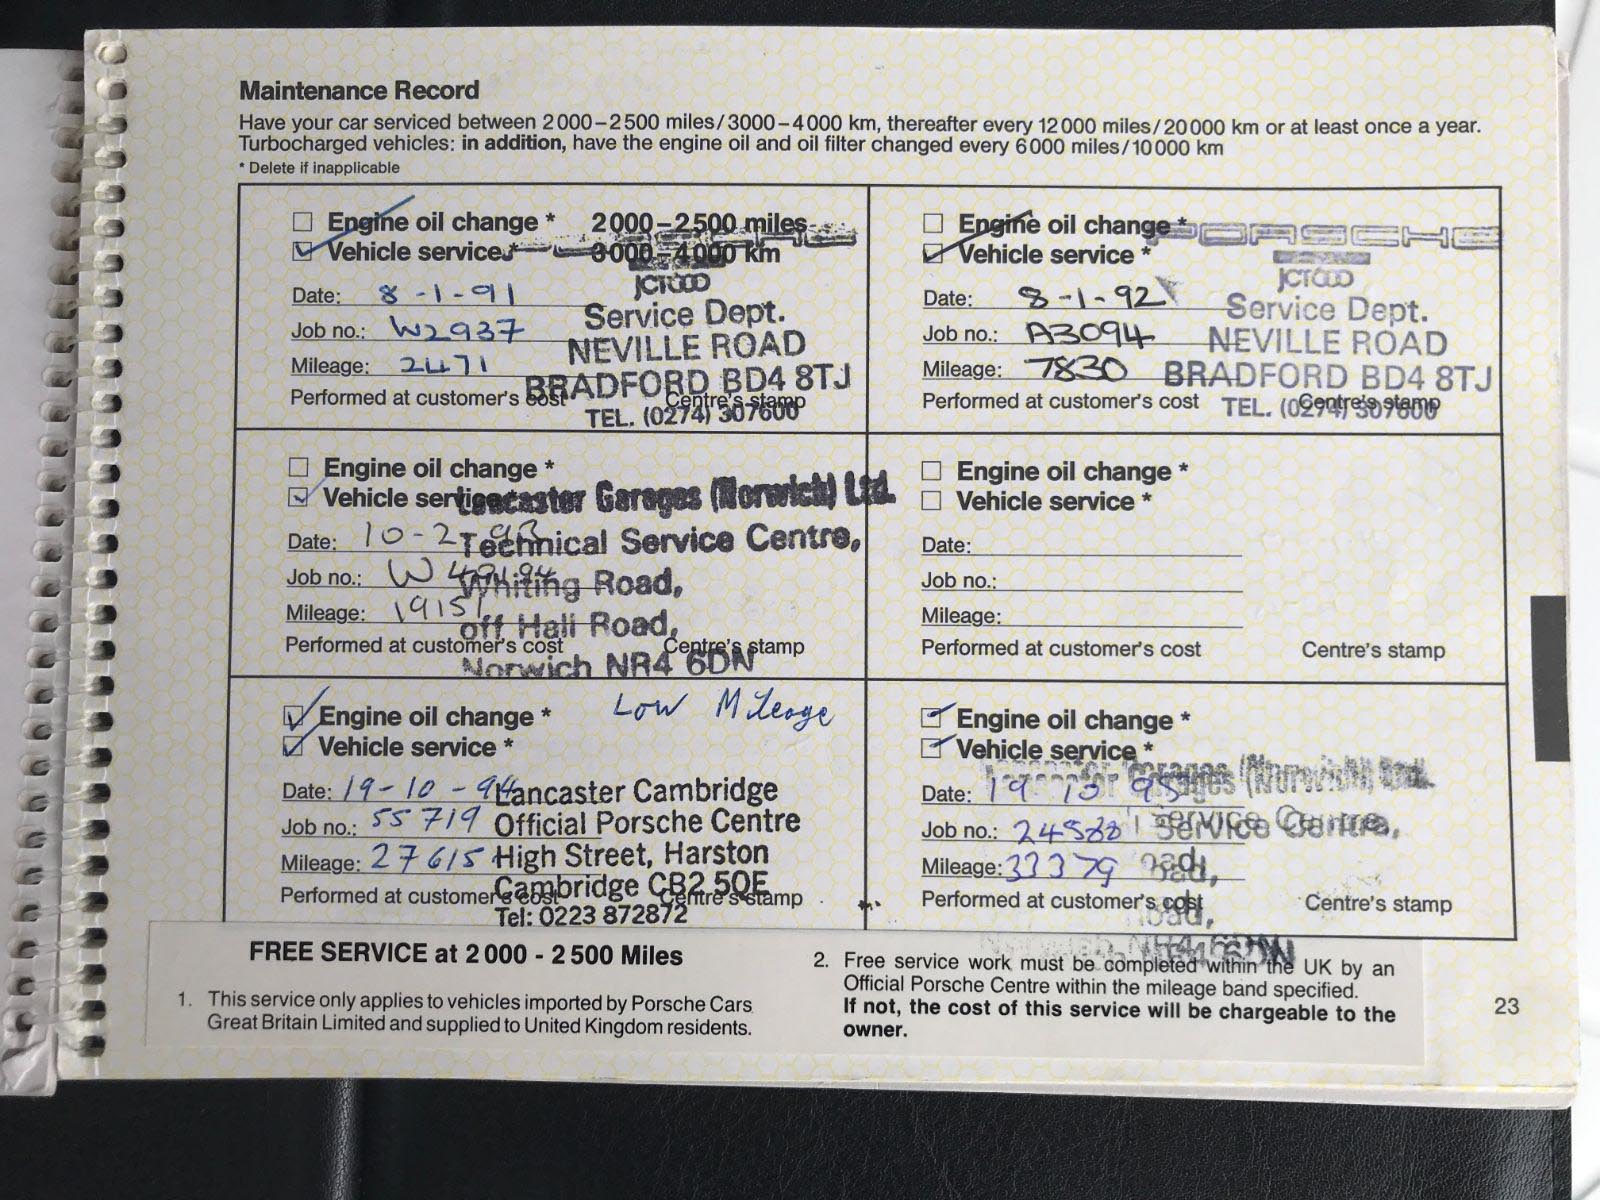 Maintenance Record
Have your car serviced between 2000–2500 miles/3000–4000 km, thereafter every 12000 miles/20000 km or at least once a year.
Turbocharged vehicles: in addition, have the engine oil and oil filter changed every 6000 miles/10000 km
* Delete if inapplicable
Engine oil change * 2000–2500 miles
Vehicle service * 3000–4000 km
JCT600
Date: 8-1-91
Service Dept.
Job no.: W2937
NEVILLE ROAD
Mileage: 2471
BRADFORD BD4 8TJ
Performed at customer's cost Centre's stamp
TEL. (0274) 307600
Engine oil change *
PORSCHE
Vehicle service *
JCT600
Date: 8-1-92
Service Dept.
Job no.: A3094
NEVILLE ROAD
Mileage: 7830
BRADFORD BD4 8TJ
Performed at customer's cost Centre's stamp
TEL. (0274) 307600
Engine oil change *
Vehicle service *
Lancaster Garages (Norwich) Ltd.
Date: 10-2-93
Technical Service Centre,
Job no.: W
Whiting Road,
Mileage: 19151
off Hall Road,
Performed at customer's cost Centre's stamp
Norwich NR4 6DN
Engine oil change *
Vehicle service *
Date:
Job no.:
Mileage:
Performed at customer's cost Centre's stamp
Engine oil change * Low Mileage
Vehicle service *
Date: 19-10-94 Lancaster Cambridge
Job no.: 55719 Official Porsche Centre
Mileage: 27615 High Street, Harston
Cambridge CB2 5QE
Performed at customer's cost Centre's stamp
Tel: 0223 872872
Engine oil change *
Vehicle service *
Garages (Norwich) Ltd.
Date: 19 10 95
Service Centre,
Job no.:
Mileage: 33379
Road,
Performed at customer's cost Centre's stamp
Road,
Norwich NR4 6DN
FREE SERVICE at 2000 - 2500 Miles
1. This service only applies to vehicles imported by Porsche Cars
Great Britain Limited and supplied to United Kingdom residents.
2. Free service work must be completed within the UK by an
Official Porsche Centre within the mileage band specified.
If not, the cost of this service will be chargeable to the
owner.
23